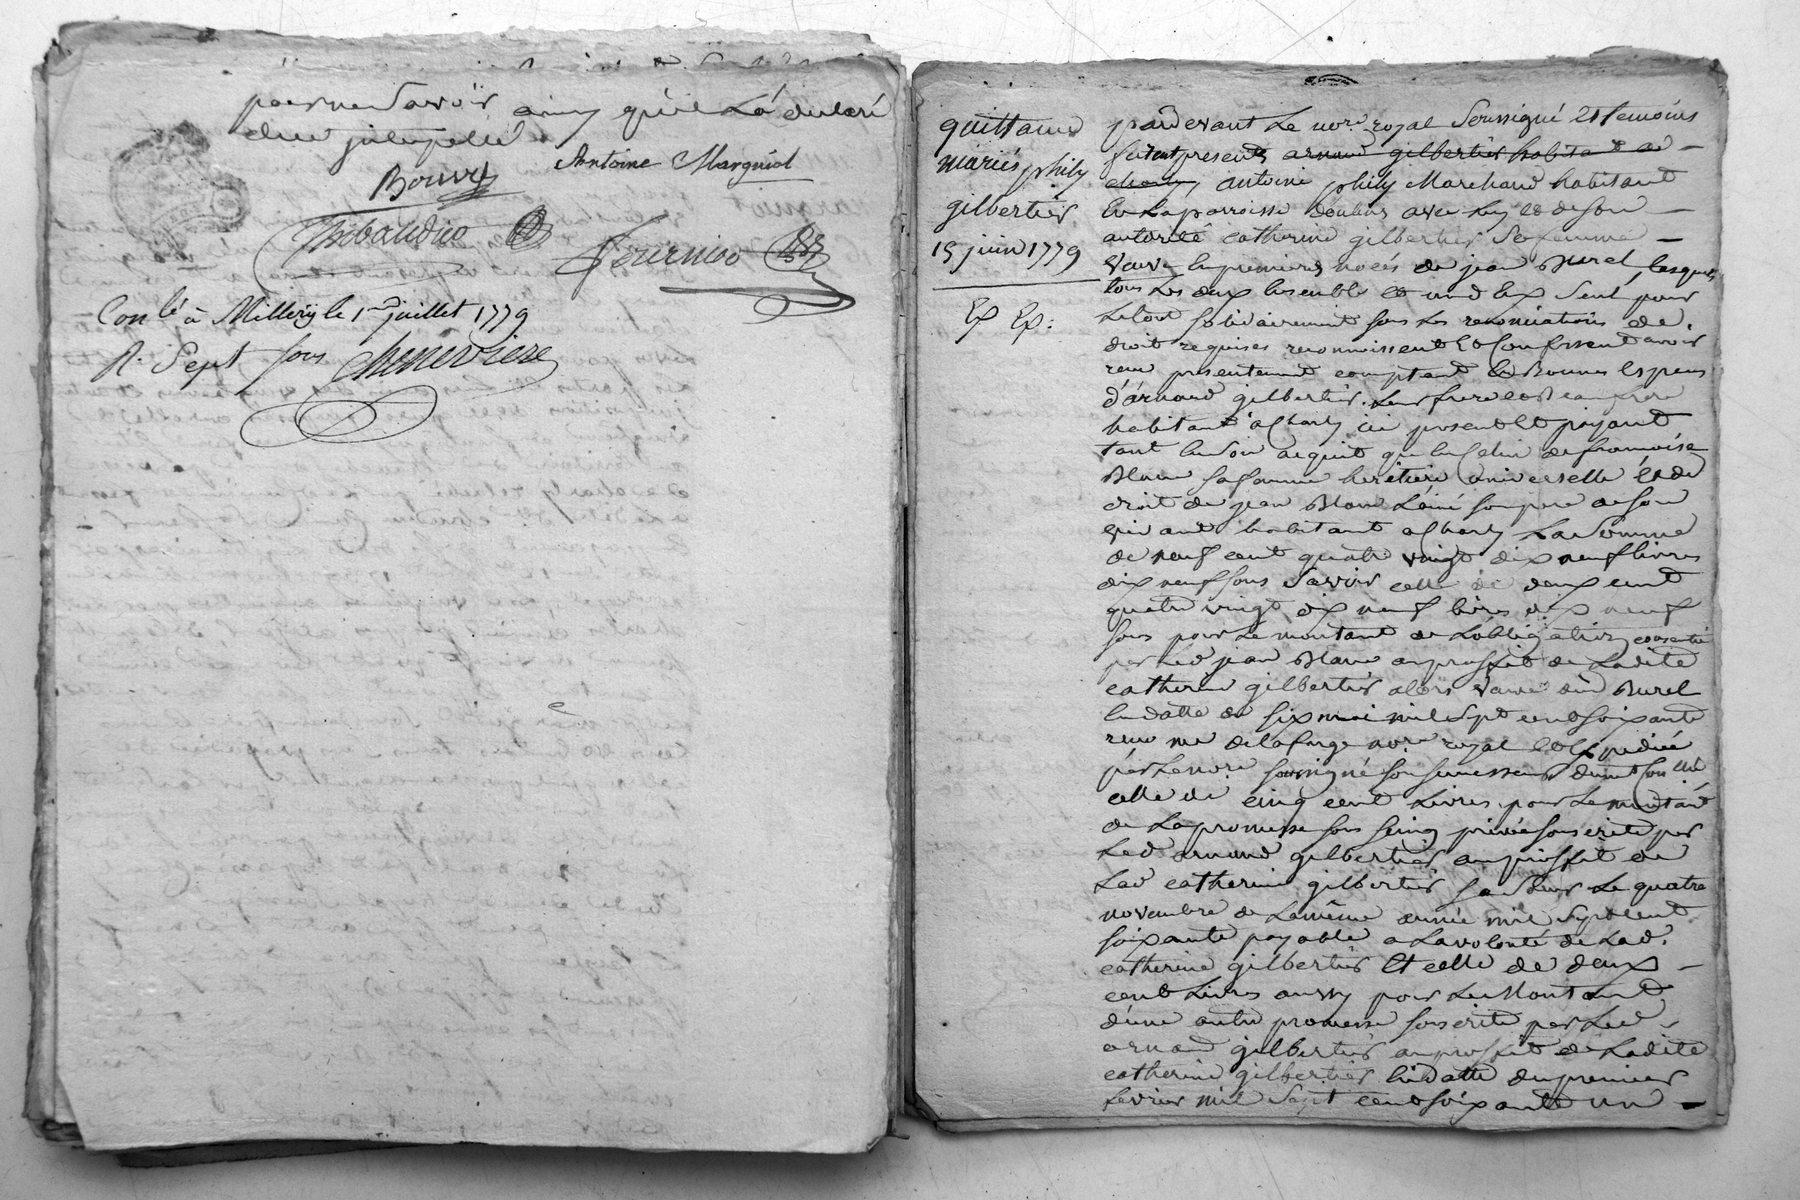 pour ne Savoir ainsy qu'il La déclaré
Bouvry Antoine Marguiol
Thibaudier Fournier
Conlé à Millery le 1er juillet 1779
R. Sept sous Chenevriere
quittance
mariés phily
gilbertier
15 juin 1779
Ex Ex:
pardevant Le nore royal Soussigné Et temoins
furent presents arnaud gilbertier habitant a
charly antoine phily Marchand habitant
En La parroisse avec Luy et de Son
autorité catherine gilbertier Sa femme
veuve En premieres noces de jean Burel Lesquels
tous Les deux Ensemble et un d Eux Seul pour
Le tout Solidairement sous Les renonciations de
droit requises reconnoissent Et Confessent avoir
reçu presentement comptant En Bonnes Especes
d'arnaud gilbertier Leur frere et Beaufrere
habitant a Charly ici present Et payant
tant En Son acquit qu En Celui de francoise
Blanc Sa femme heritiere universelle Et de
droit de jean Blanc L'ainé Son pere de Son
vivant habitant a Charly La Somme
de neuf cent quatre vingt dix neuf livres
dix neuf sous Savoir celle de deux cent
quatre vingt dix neuf livres dix neuf
sous pour Le montant de L'obligation consentie
par Led jean Blanc au proffit de Ladite
catherine gilbertier alors veuve dud Burel
En datte du six mai mil Sept cent soixante
reçue me delafarge nore royal et Expediée
par Le nore soussigné Son Successeur duement Conllé
celle de cinq cent Livres pour Le montant
de La promesse sous Seing privé Souscrite par
Led arnaud gilbertier au proffit de
Lad catherine gilbertier Sa Sœur Le quatre
novembre de La même année mil Sept cent
soixante payable a La volonté de Lad.
catherine gilbertier Et celle de deux
cent Livres aussy pour Le Montant
d'une autre promesse souscrite par Led
arnaud gilbertier au proffit de Ladite
catherine gilbertier En datte du premier
fevrier mil Sept cent soixante un